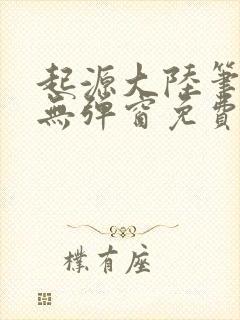 起源大陸筆
無彈窗免費
樸有座